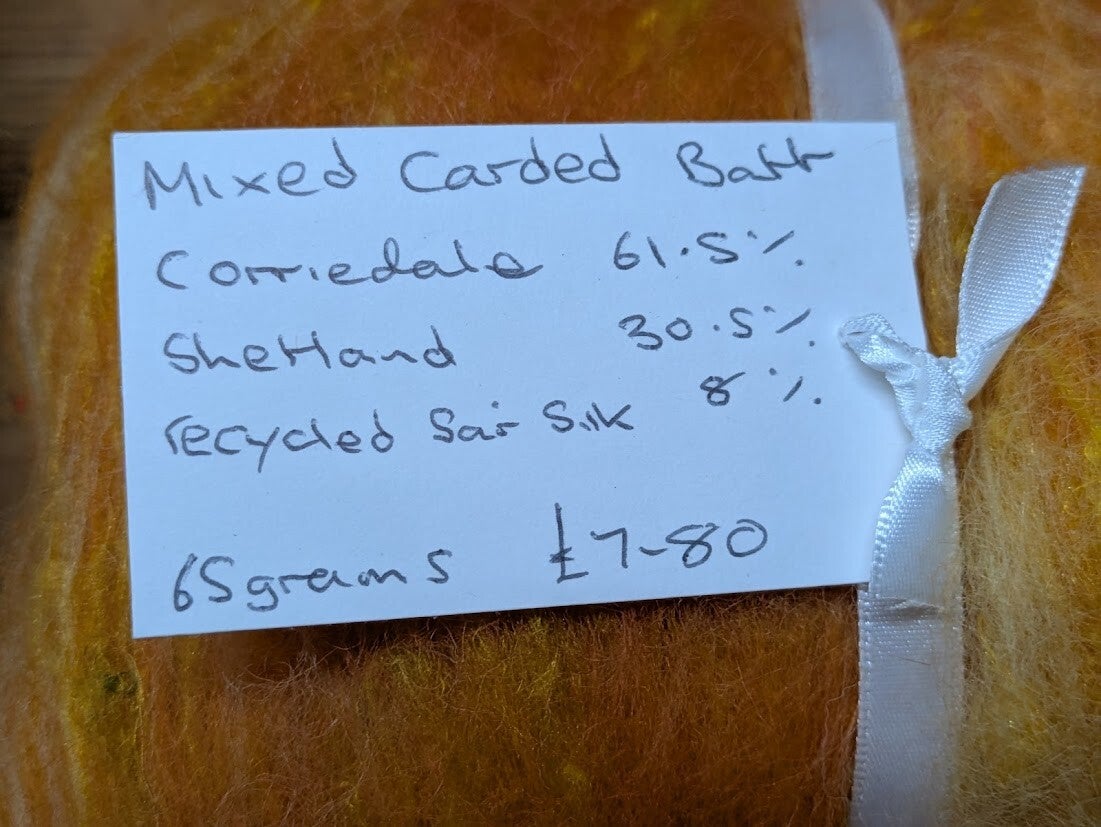 Mixed Carded Batt
Corriedale 61.5%
Shetland 30.5%
recycled Sari Silk 8%
65grams £7-80